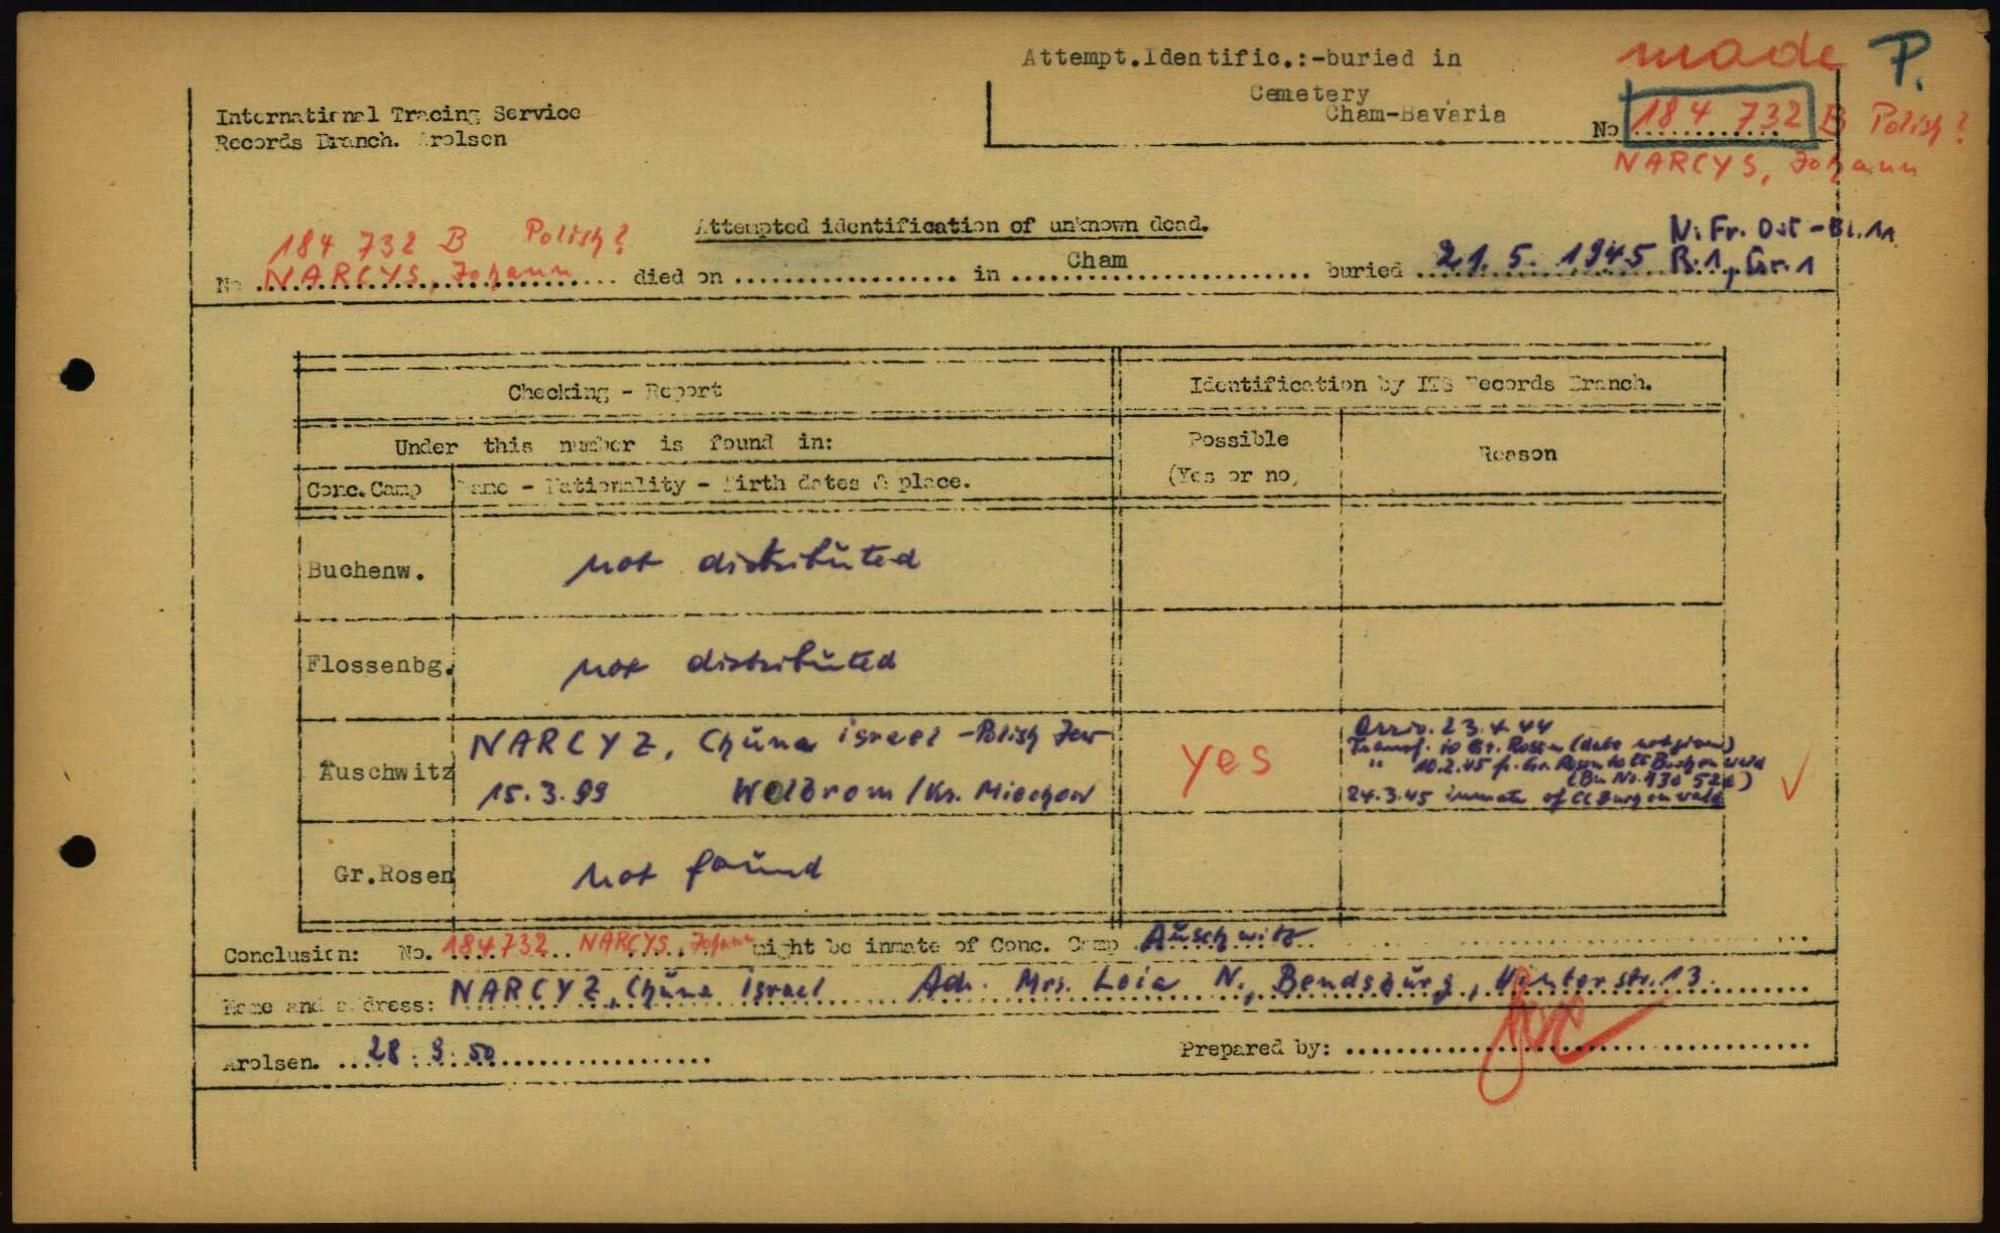 Attempt.Identific.:-buried in
Cemetery
Cham-Bavaria
made P.
No 184 732 B Polish?
NARCYS, Johann
International Tracing Service
Records Branch. Arolsen
Attempted identification of unknown dead.
184 732 B Polish?
No NARCYS, Johann died on in Cham buried 21.5.1945
N. Fr. Ost - Bl. 11
R. 1, Gr. 1
Checking - Report
Identification by ITS Records Branch.
Under this number is found in:
Possible
(Yes or no,
Reason
Conc.Camp Name - Nationality - Birth dates & place.
Buchenw. not distributed
Flossenbg. not distributed
Auschwitz NARCYZ, Chuna israel - Polish Jew
15.3.99 Wolbrom /Kr. Miechow
yes
Arriv. 23.4.44
Transf. to Gr. Rosen (date not given)
" 10.2.45 fr. Gr. Rosen to CC Buchenwald
(Bu No. 130 526)
24.3.45 inmate of CC Buchenwald
Gr.Rosen not found
Conclusion: No. 184732 NARCYS, Johann might be inmate of Conc. Camp Auschwitz
Name and address: NARCYZ, Chuna Israel Adr. Mrs. Loia N., Bendsburg, Hinterstr. 13.
Arolsen. 28.3.50
Prepared by: